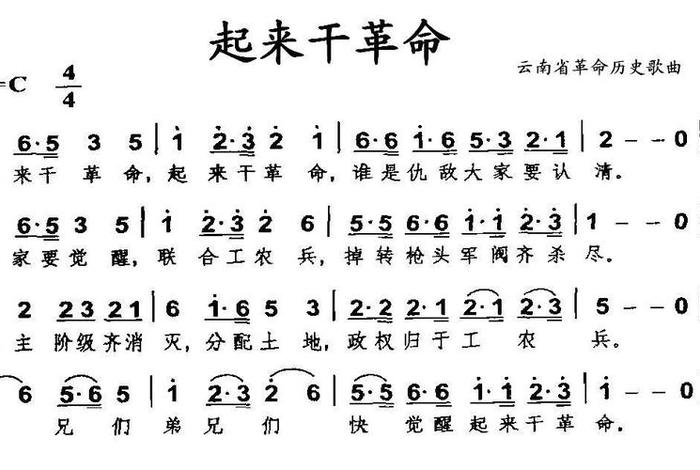 起来干革命
云南省革命历史歌曲
=C 4/4
6·5 3 5 | i 2̇·3̇ 2̇ i | 6·6 i·6 5·3 2·1 | 2 - - 0
来干 革 命, 起 来干革 命, 谁是仇敌大家要认 清。
6·5 3 5 | i 2̇·3̇ 2̇ 6 | 5·5 6·6 i·i 2̇·3̇ | i - - 0
家要觉 醒, 联 合工农兵, 掉转枪头军阀齐杀尽。
2 23 21 | 6 i·6 5 3 | 2·2 2·1 2·1 2·3 | 5 - - 0
主 阶级齐消 灭, 分配土 地, 政权归于工 农 兵。
6 5·6 5 | i 2̇·3̇ 2̇ 6 | 5·5 6·6 i·i 2̇·3̇ | i - - 0
兄 们 弟兄 们 快 觉醒起来干革 命.